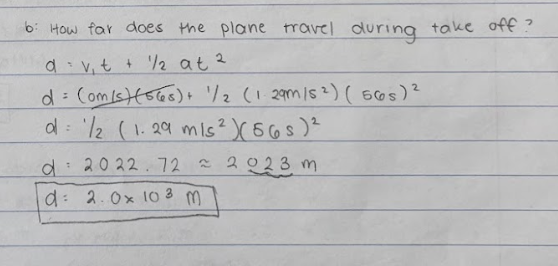 b: How far does the plane travel during take off?
d = v₁t + 1/2 at²
d = (0m/s)(56s) + 1/2 (1.29m/s²)(56s)²
d = 1/2 (1.29 m/s²)(56s)²
d = 2022.72 ≈ 2023 m
d = 2.0 × 10³ m